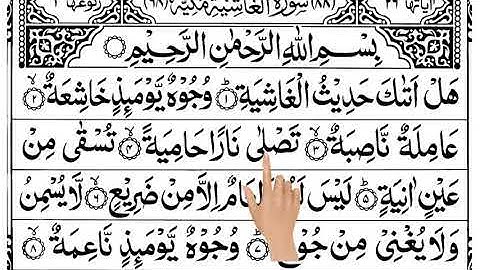 سورة الغاشية مكية (٨٨)
بِسْمِ اللهِ الرَّحْمٰنِ الرَّحِيْمِ
هَلْ اَتٰىكَ حَدِيْثُ الْغَاشِيَةِ ۝١ وُجُوْهٌ يَّوْمَئِذٍ خَاشِعَةٌ ۝٢
عَامِلَةٌ نَّاصِبَةٌ ۝٣ تَصْلٰى نَارًا حَامِيَةً ۝٤ تُسْقٰى مِنْ
عَيْنٍ اٰنِيَةٍ ۝٥ لَيْسَ اِلَّا مِنْ ضَرِيْعٍ ۝٦ لَّا يُسْمِنُ
وَلَا يُغْنِيْ مِنْ ۝٧ وُجُوْهٌ يَّوْمَئِذٍ نَّاعِمَةٌ ۝٨